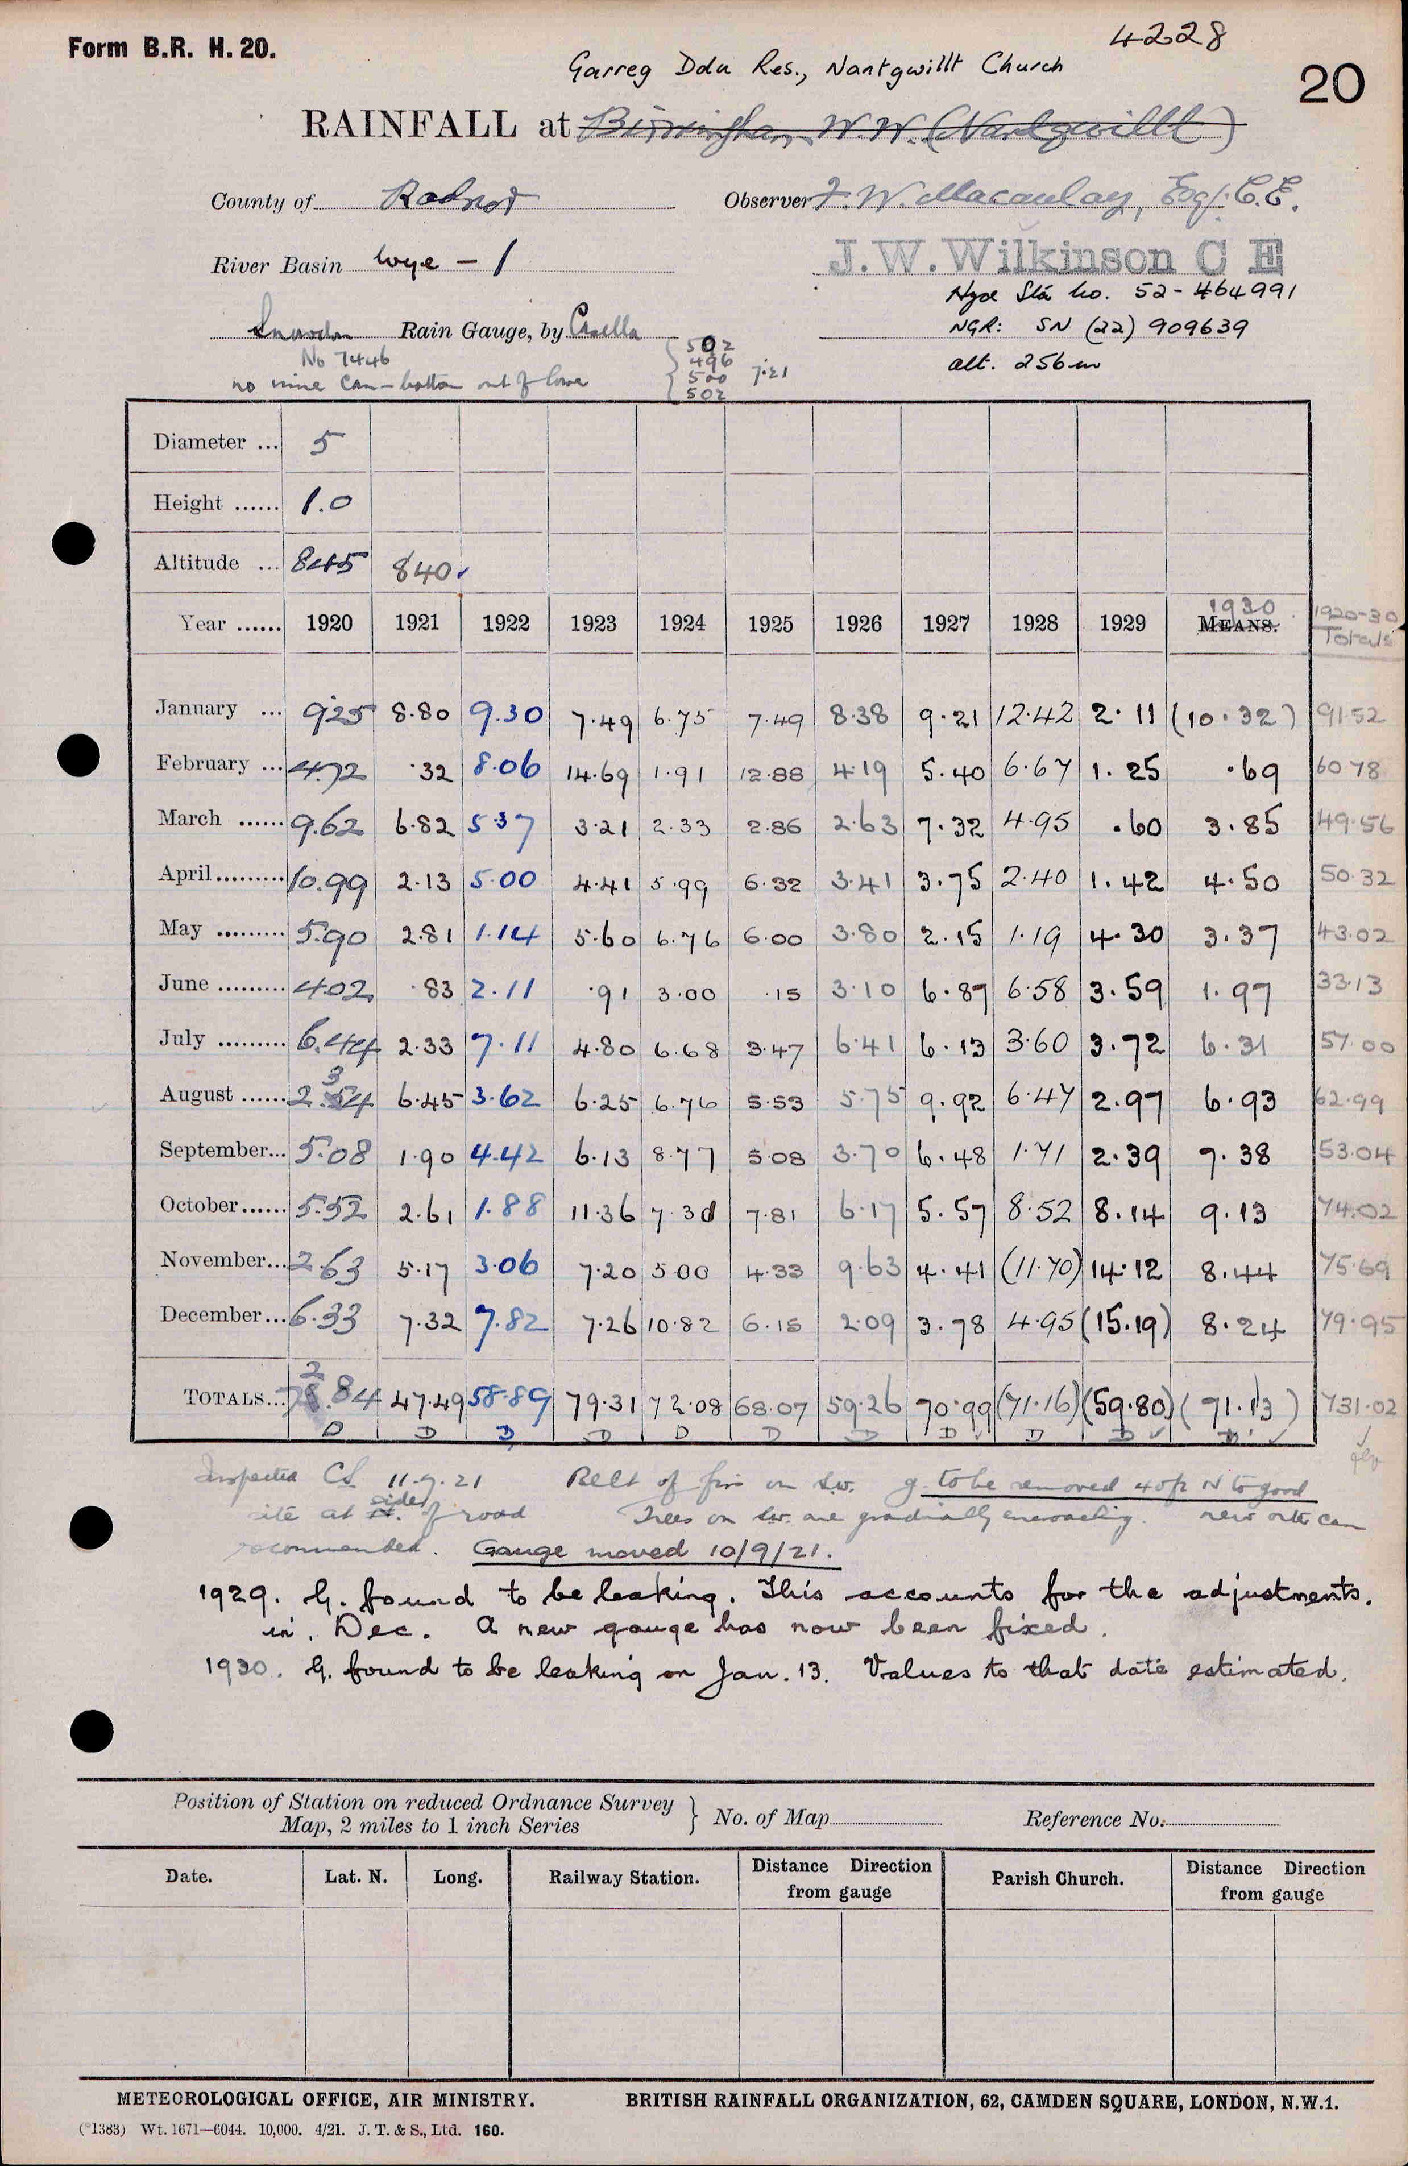 4228
Form B.R. H. 20.
Garreg Ddu Res., Nantgwillt Church
20
RAINFALL at Birmingham W.W. (Nantgwillt)
County of Radnor Observer F. W. Macaulay, Esq. C.E.
River Basin Wye - 1 J. W. Wilkinson C E
Hyde Sta No. 52-464991
Snowdon Rain Gauge, by Casella NGR: SN (22) 909639
No 7446 alt. 256m
no inner can - bottom out of
502
496
500 7.21
502
Diameter ... 5
Height ...... 1.0
Altitude ... 845 840
Year ...... 1920 1921 1922 1923 1924 1925 1926 1927 1928 1929 1930 MEANS. 1920-30 Totals
January ... 9.25 8.80 9.30 7.49 6.75 7.49 8.38 9.21 12.42 2.11 (10.32) 91.52
February ... 4.72 .32 8.06 14.69 1.91 12.88 4.19 5.40 6.67 1.25 .69 60.78
March ...... 9.62 6.82 5.37 3.21 2.33 2.86 2.63 7.32 4.95 .60 3.85 49.56
April ......... 10.99 2.13 5.00 4.41 5.99 6.32 3.41 3.75 2.40 1.42 4.50 50.32
May ......... 5.90 2.81 1.14 5.60 6.76 6.00 3.80 2.15 1.19 4.30 3.37 43.02
June ......... 4.02 .83 2.11 .91 3.00 .15 3.10 6.87 6.58 3.59 1.97 33.13
July ......... 6.44 2.33 7.11 4.80 6.68 3.47 6.41 6.13 3.60 3.72 6.31 57.00
August ...... 2.34 6.45 3.62 6.25 6.76 5.53 5.75 9.92 6.47 2.97 6.93 62.99
September... 5.08 1.90 4.42 6.13 8.77 5.08 3.70 6.48 1.71 2.39 7.38 53.04
October...... 5.52 2.61 1.88 11.36 7.30 7.81 6.17 5.57 8.52 8.14 9.13 74.02
November... 2.63 5.17 3.06 7.20 5.00 4.33 9.63 4.41 (11.70) 14.12 8.44 75.69
December... 6.33 7.32 7.82 7.26 10.82 6.15 2.09 3.78 4.95 (15.19) 8.24 79.95
TOTALS... 72.84 47.49 58.89 79.31 72.08 68.07 59.26 70.99 (71.16) (59.80) (71.13) 731.02
D D D D D D D D D D D
Inspected CS 11.7.21 Belt of fir on SW. g. to be removed 40ft N to good
site at side of road Trees on SW. are gradually encroaching. new outer can
recommended. Gauge moved 10/9/21.
1929. G. found to be leaking. This accounts for the adjustments.
in. Dec. A new gauge has now been fixed.
1930. G. found to be leaking on Jan. 13. Values to that date estimated.
Position of Station on reduced Ordnance Survey
Map, 2 miles to 1 inch Series } No. of Map Reference No.
Date. Lat. N. Long. Railway Station. Distance Direction from gauge Parish Church. Distance Direction from gauge
METEOROLOGICAL OFFICE, AIR MINISTRY. BRITISH RAINFALL ORGANIZATION, 62, CAMDEN SQUARE, LONDON, N.W.1.
(*1383) Wt. 1671—6044. 10,000. 4/21. J. T. & S., Ltd. 160.